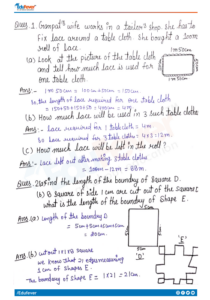 EduRever
Ques 1. Ganpat's wife works in a tailor's shop she has to
fix lace around a table cloth. She bought a 100m
roll of lace.
(a) Look at the picture of the table cloth
and tell how much lace is used for
one table cloth.
1m 50cm
Ans:- 1m 50cm = 100cm + 50cm = 150cm
So the length of lace required for one table cloth
(b) How much lace will be used in 3 such table cloths
Ans:- Lace required for 1 tablecloth = 4m
So lace required for 3 table cloths = 4×3 = 12m.
(c) How much lace will be left in the roll?
Ans:- Lace left out after making 3 table cloths
= 100m - 12m = 88m.
Ques. 2 (a) Find the length of the boundary of Square D.
(b) A square of side 1cm are cut out of the Square
what is the length of the boundary of Shape E.
Ans (a) Length of the boundary D
= 5cm+5cm+5cm+5cm
= 20cm
5cm
'D'
'E'
Ans (b) cut out 1×1 of square
1 cm of Shapes E.
The boundary of Shape E